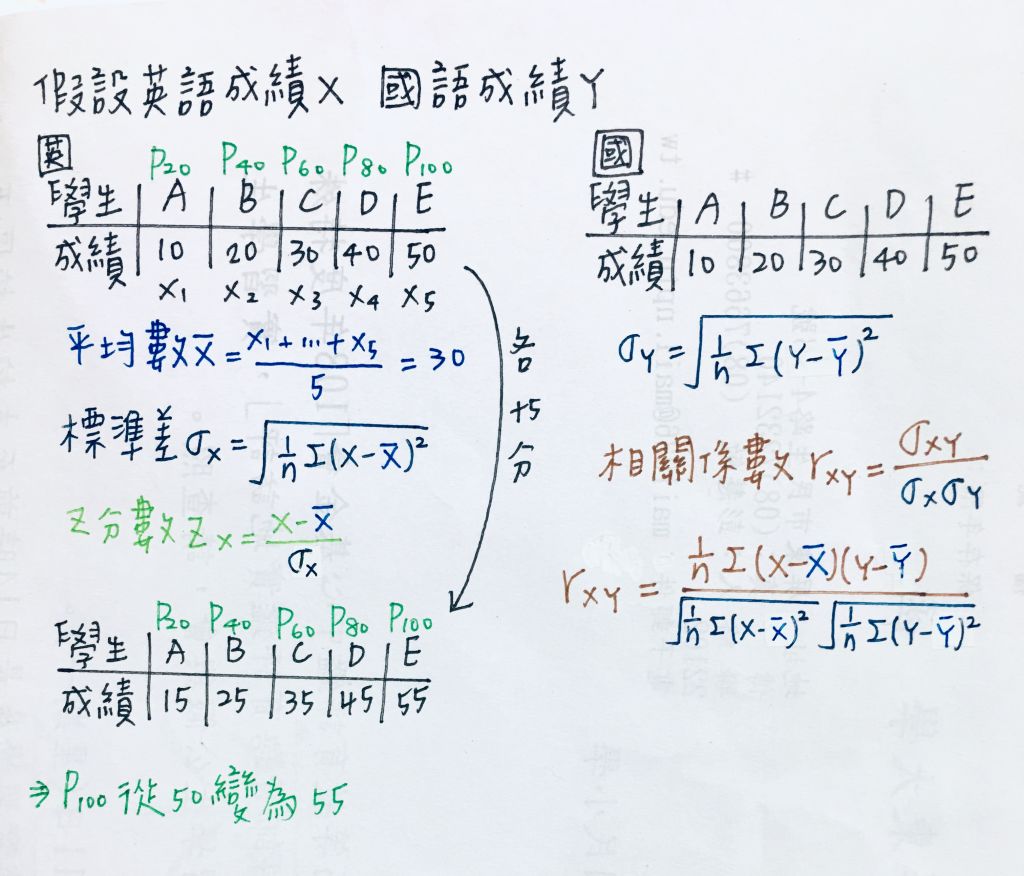 假設英語成績X 國語成績Y
英
P20 P40 P60 P80 P100
學生 A B C D E
成績 10 20 30 40 50
X1 X2 X3 X4 X5
平均數X̄ = (X1+...+X5)/5 = 30
標準差σx = √(1/n Σ(X-X̄)²)
Z分數Zx = (X-X̄)/σx
各+5分
P20 P40 P60 P80 P100
學生 A B C D E
成績 15 25 35 45 55
⇒ P100從50變為55
國
學生 A B C D E
成績 10 20 30 40 50
σY = √(1/n Σ(Y-Ȳ)²)
相關係數rXY = σXY/(σXσY)
rXY = (1/n Σ(X-X̄)(Y-Ȳ))/(√(1/n Σ(X-X̄)²) √(1/n Σ(Y-Ȳ)²))